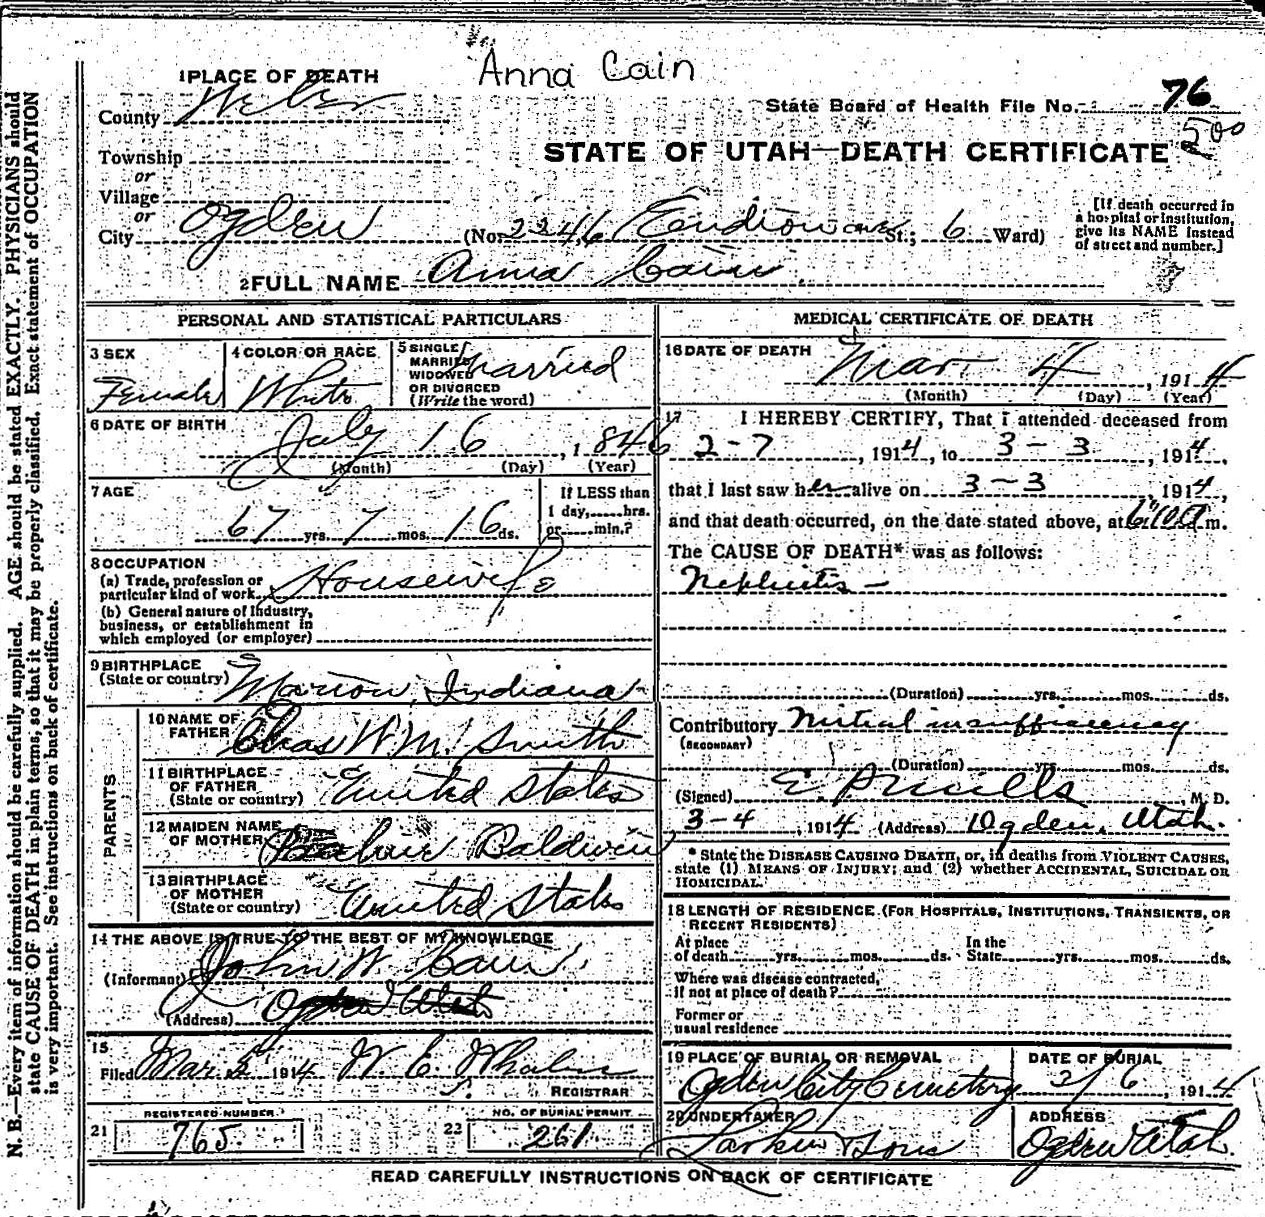 Anna Cain
1 PLACE OF DEATH
County Weber
State Board of Health File No. 76
500
Township
or
Village
or
STATE OF UTAH—DEATH CERTIFICATE
City Ogden (No. 2246 St.; 6 Ward)
[If death occurred in
a hospital or institution,
give its NAME instead
of street and number.]
2 FULL NAME Anna Cain
PERSONAL AND STATISTICAL PARTICULARS
3 SEX
Female
4 COLOR OR RACE
White
5 SINGLE
MARRIED
WIDOWED
OR DIVORCED
(Write the word)
Married
6 DATE OF BIRTH
July 16, 1846
(Month) (Day) (Year)
7 AGE
67 yrs. 7 mos. 16 ds.
If LESS than
1 day,......hrs.
or......min.?
8 OCCUPATION
(a) Trade, profession or
particular kind of work Housewife
(b) General nature of Industry,
business, or establishment in
which employed (or employer)
9 BIRTHPLACE
(State or country) Marion, Indiana
PARENTS
10 NAME OF
FATHER Chas Wm. Smith
11 BIRTHPLACE
OF FATHER
(State or country) United States
12 MAIDEN NAME
OF MOTHER Baldwin
13 BIRTHPLACE
OF MOTHER
(State or country) United States
14 THE ABOVE IS TRUE TO THE BEST OF MY KNOWLEDGE
(Informant) John W. Cain
(Address) Ogden Utah
15
Filed Mar 5 1914 W. E. Whalen
REGISTRAR
21 REGISTERED NUMBER
765
22 NO. OF BURIAL PERMIT
261
MEDICAL CERTIFICATE OF DEATH
16 DATE OF DEATH
Mar. 4, 1914
(Month) (Day) (Year)
17 I HEREBY CERTIFY, That I attended deceased from
2-7, 1914, to 3-3, 1914,
that I last saw her alive on 3-3 1914,
and that death occurred, on the date stated above, at 6:10 a m.
The CAUSE OF DEATH* was as follows:
Nephritis —
(Duration) yrs. mos. ds.
Contributory Mitral insufficiency
(SECONDARY)
(Duration) yrs. mos. ds.
(Signed) E. P. Mills, M. D.
3-4, 1914 (Address) Ogden, Utah.
* State the DISEASE CAUSING DEATH, or, in deaths from VIOLENT CAUSES,
state (1) MEANS OF INJURY; and (2) whether ACCIDENTAL, SUICIDAL OR
HOMICIDAL.
18 LENGTH OF RESIDENCE (FOR HOSPITALS, INSTITUTIONS, TRANSIENTS, OR
RECENT RESIDENTS)
At place In the
of death yrs. mos. ds. State yrs. mos. ds.
Where was disease contracted,
if not at place of death?
Former or
usual residence
19 PLACE OF BURIAL OR REMOVAL
Ogden City Cemetery
DATE OF BURIAL
3/6, 1914
20 UNDERTAKER
Larkin & Sons
ADDRESS
Ogden Utah.
READ CAREFULLY INSTRUCTIONS ON BACK OF CERTIFICATE
N. B.—Every item of information should be carefully supplied. AGE should be stated EXACTLY. PHYSICIANS should
state CAUSE OF DEATH in plain terms, so that it may be properly classified. Exact statement of OCCUPATION
is very important. See instructions on back of certificate.